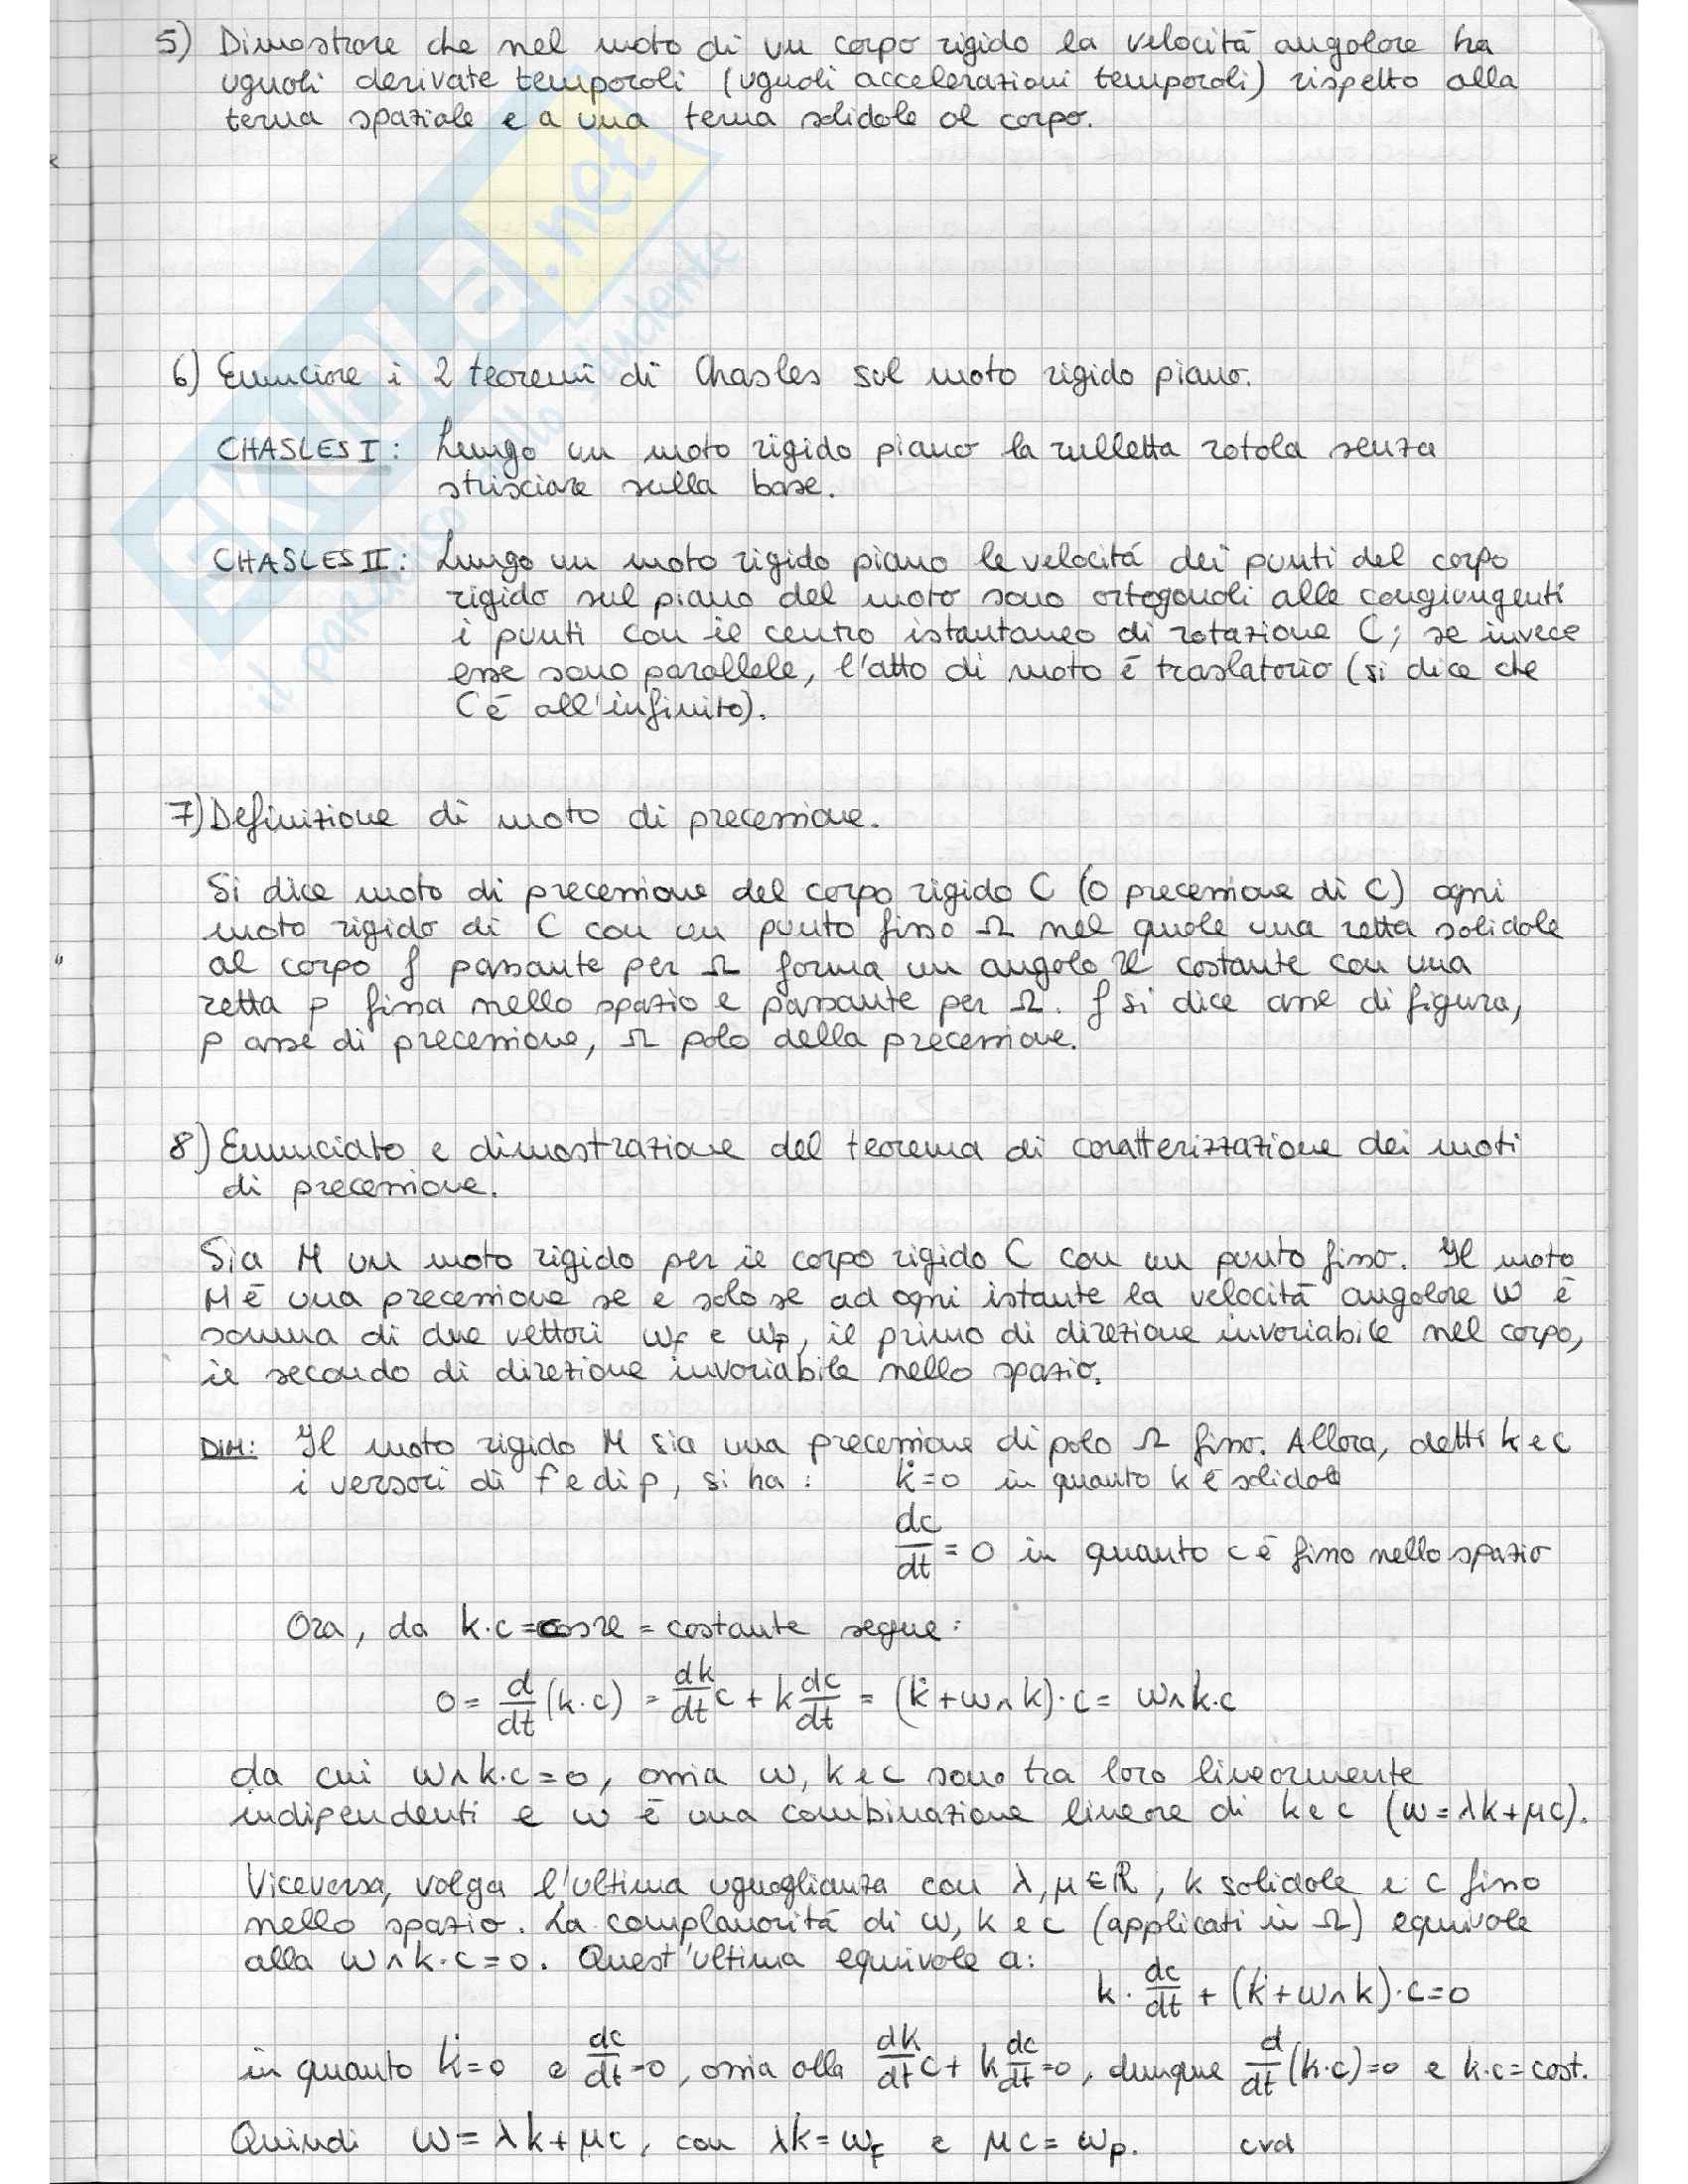 5) Dimostrare che nel moto di un corpo rigido la velocità angolare ha
uguali derivate temporali (uguali accelerazioni temporali) rispetto alla
terna spaziale e a una terna solidale al corpo.
6) Enunciare i 2 teoremi di Chasles sul moto rigido piano.
CHASLES I: Lungo un moto rigido piano la rulletta rotola senza
strisciare sulla base.
CHASLES II: Lungo un moto rigido piano le velocità dei punti del corpo
rigido sul piano del moto sono ortogonali alle congiungenti
i punti con il centro istantaneo di rotazione C; se invece
esse sono parallele, l'atto di moto è traslatorio (si dice che
C è all'infinito).
7) Definizione di moto di precessione.
Si dice moto di precessione del corpo rigido C (o precessione di C) ogni
moto rigido di C con un punto fisso Ω nel quale una retta solidale
al corpo f passante per Ω forma un angolo ϑ costante con una
retta p fissa nello spazio e passante per Ω. f si dice asse di figura,
p asse di precessione, Ω polo della precessione.
8) Enunciato e dimostrazione del teorema di caratterizzazione dei moti
di precessione.
Sia M un moto rigido per il corpo rigido C con un punto fisso. Il moto
M è una precessione se e solo se ad ogni istante la velocità angolare ω è
somma di due vettori ωf e ωp, il primo di direzione invariabile nel corpo,
il secondo di direzione invariabile nello spazio.
DIM: Il moto rigido M sia una precessione di polo Ω fisso. Allora, detti k e c
i versori di f e di p, si ha: k̇=0 in quanto k è solidale
dc/dt = 0 in quanto c è fisso nello spazio
Ora, da k·c=cosϑ = costante segue:
0 = d/dt (k·c) = dk/dt c + k dc/dt = (k̇+ω∧k)·c = ω∧k·c
da cui ω∧k·c=0, ossia ω, k e c sono tra loro linearmente
indipendenti e ω è una combinazione lineare di k e c (ω=λk+μc).
Viceversa, valga l'ultima uguaglianza con λ,μ∈ℝ, k solidale e c fisso
nello spazio. La complanarità di ω, k e c (applicati in Ω) equivale
alla ω∧k·c=0. Quest'ultima equivale a:
k · dc/dt + (k̇+ω∧k)·c=0
in quanto k̇=0 e dc/dt=0, ossia alla dk/dt c + k dc/dt=0, dunque d/dt (k·c)=0 e k·c=cost.
Quindi ω=λk+μc, con λk=ωf e μc=ωp. cvd
skuola.net
il paradiso dello studente